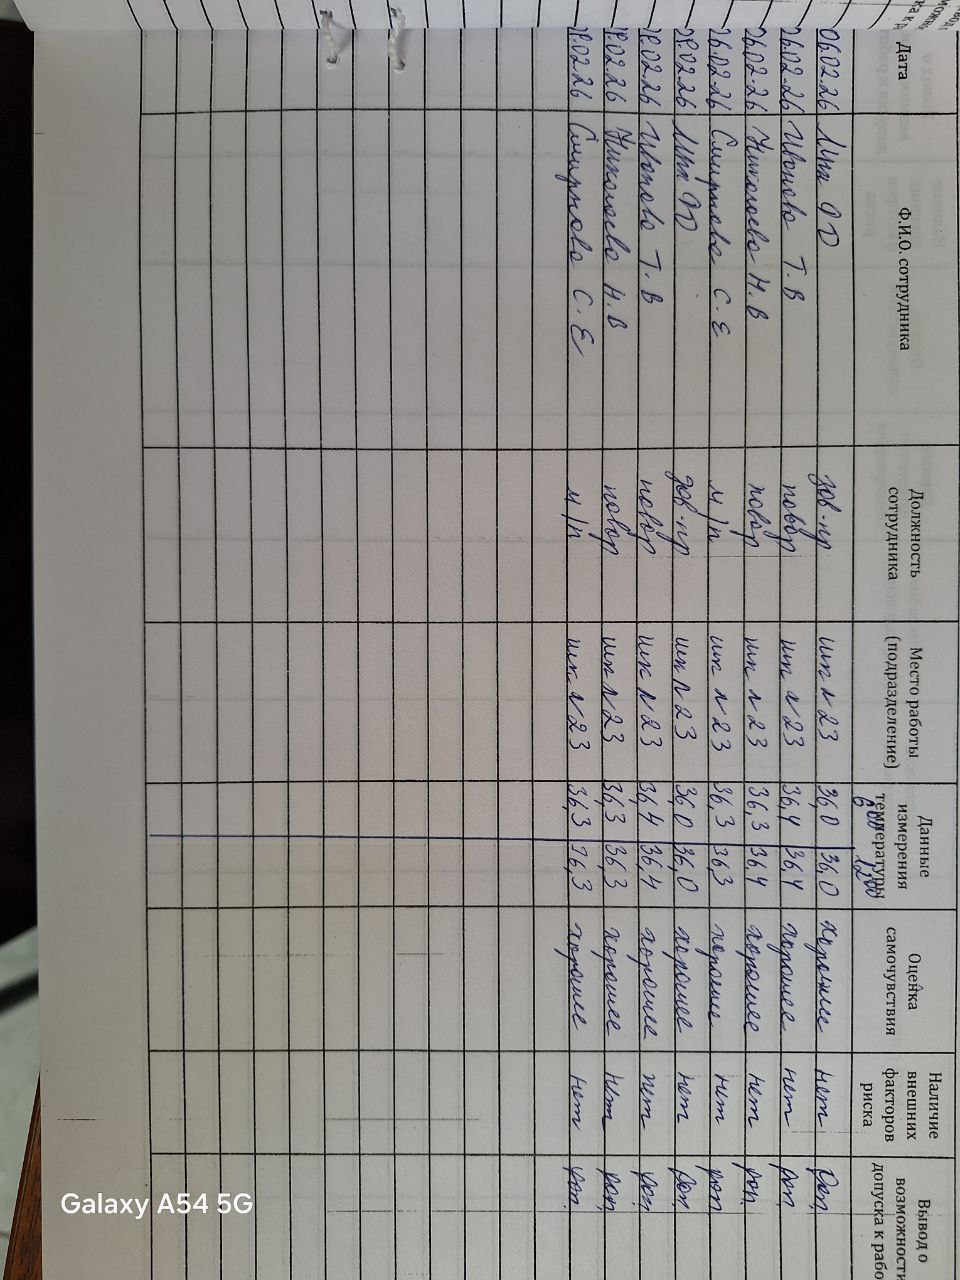 Дата Ф.И.О. сотрудника Должность сотрудника Место работы (подразделение) Данные измерения температуры 6:00 12:00 Оценка самочувствия Наличие внешних факторов риска Вывод о возможности допуска к рабо
06.02.26 зав.пр шп №23 36,0 36,0 хорошее нет доп.
06.02.26 Иванова Т.В повар шп №23 36,4 36,4 хорошее нет доп.
06.02.26 Николаева Н.В повар шп №23 36,3 36,4 хорошее нет доп.
06.02.26 Смирнова С.Е м/п шп №23 36,3 36,3 хорошее нет доп
02.26 зав.пр шп №23 36,0 36,0 хорошее нет доп.
02.26 Иванова Т.В повар шп №23 36,4 36,4 хорошее нет доп.
02.26 Николаева Н.В повар шп №23 36,3 36,3 хорошее нет доп.
02.26 Смирнова С.Е м/п шп №23 36,3 36,3 хорошее нет доп.
Galaxy A54 5G